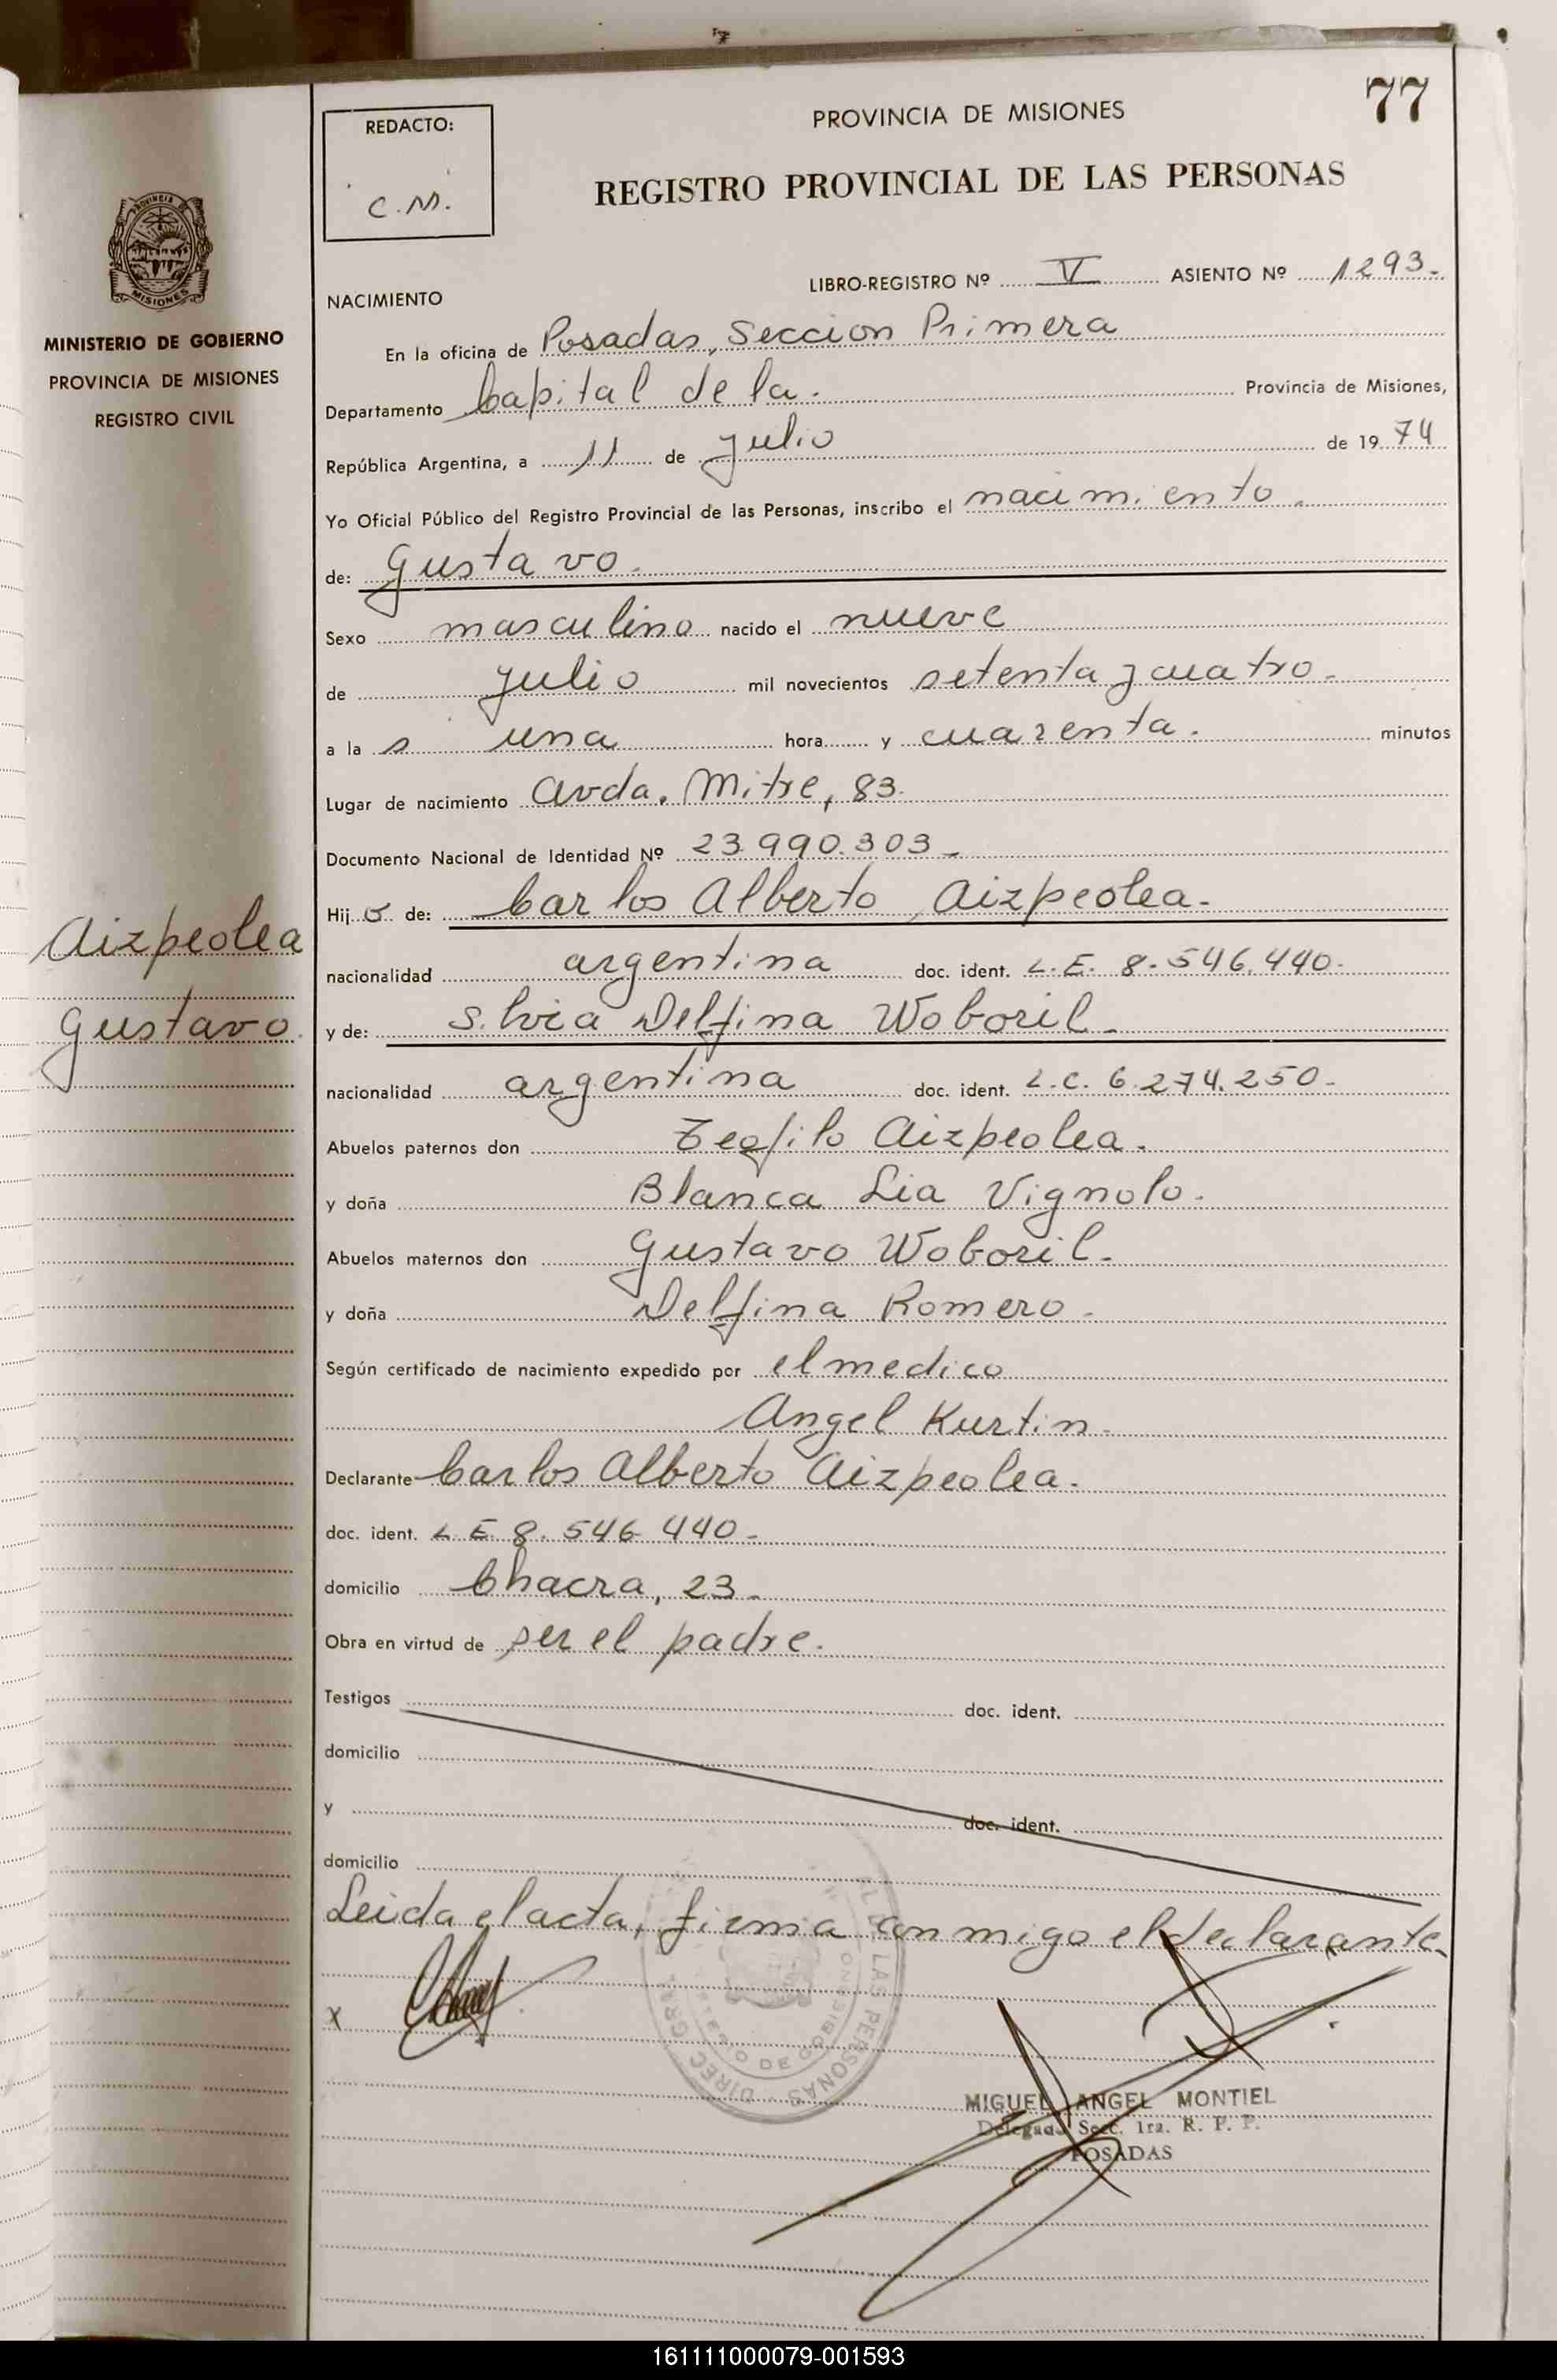 77
REDACTO:
C.M.
PROVINCIA DE MISIONES
REGISTRO PROVINCIAL DE LAS PERSONAS
PROVINCIA DE
MISIONES
MINISTERIO DE GOBIERNO
PROVINCIA DE MISIONES
REGISTRO CIVIL
Aizpeolea
Gustavo
LIBRO-REGISTRO Nº V ASIENTO Nº 1293-
NACIMIENTO
En la oficina de Posadas, Seccion Primera
Departamento Capital de la. Provincia de Misiones,
República Argentina, a 11 de Julio de 1974
Yo Oficial Público del Registro Provincial de las Personas, inscribo el nacimiento.
de: Gustavo.
Sexo masculino nacido el nueve
de Julio mil novecientos setenta y cuatro.
a la s una hora y cuarenta. minutos
Lugar de nacimiento Avda. Mitre, 83.
Documento Nacional de Identidad Nº 23.990.303-
Hij o de: Carlos Alberto Aizpeolea.
nacionalidad argentina doc. ident. L.E. 8.546.440.
y de: Silvia Delfina Woboril.
nacionalidad argentina doc. ident. L.C. 6.274.250-
Abuelos paternos don Teofilo Aizpeolea.
y doña Blanca Lia Vignolo.
Abuelos maternos don Gustavo Woboril.
y doña Delfina Romero.
Según certificado de nacimiento expedido por el medico
Angel Kurtin.
Declarante Carlos Alberto Aizpeolea.
doc. ident. L E 8.546.440-
domicilio Chacra, 23-
Obra en virtud de ser el padre.
Testigos doc. ident.
domicilio
y doc. ident.
domicilio
Leida el acta, firma conmigo el declarante.
X
MIGUEL ANGEL MONTIEL
Delegado Secc. 1ra. R. P. P.
POSADAS
161111000079-001593